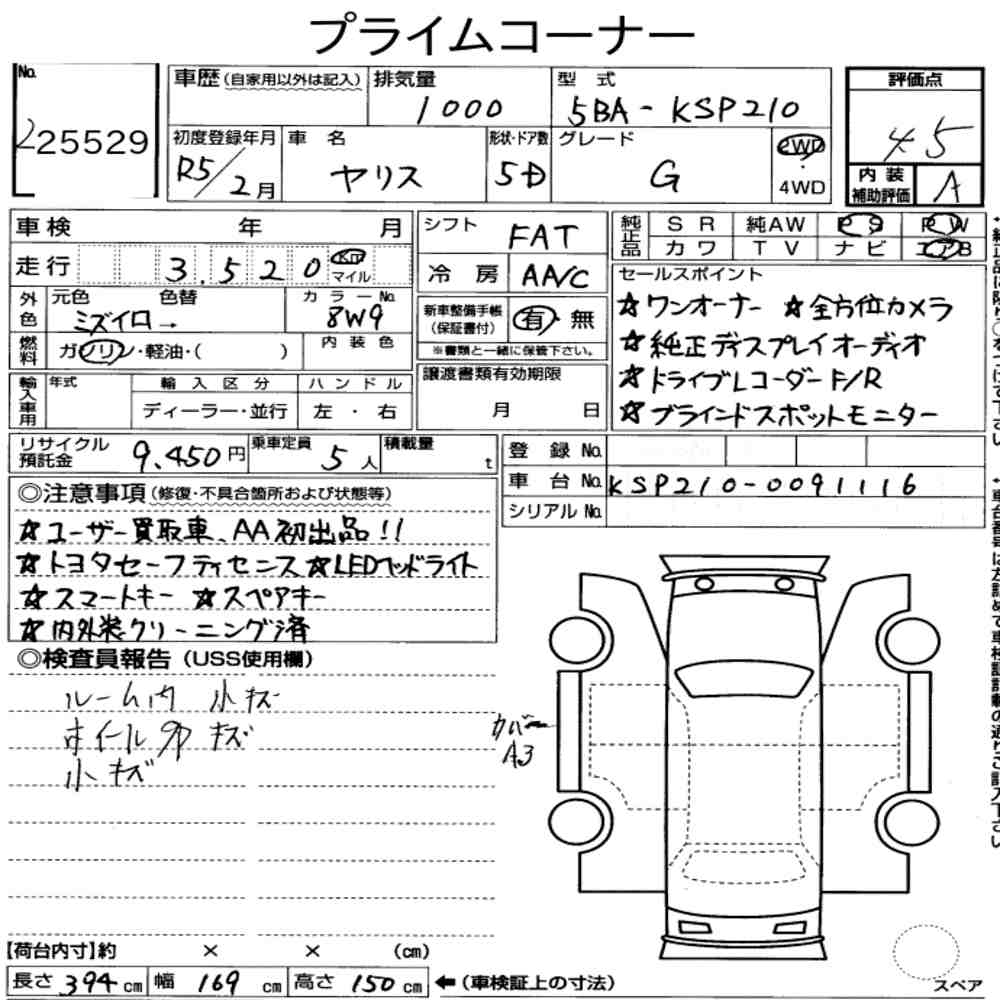 プライムコーナー
No. 225529
車歴 (自家用以外は記入)
排気量 1000
型式 5BA-KSP210
評価点 4.5
初度登録年月 R5/2月
車名 ヤリス
形状・ドア数 5D
グレード G
2WD・4WD
内装補助評価 A
車検 年 月
走行 3,520 Km マイル
シフト FAT
冷房 AA/C
純正品 SR 純AW PS PW
カワ TV ナビ エアB
外色 元色 色替 カラーNo.
ミズイロ→ 8W9
燃料 ガソリン・軽油・( )
内装色
新車整備手帳(保証書付) 有 無
※書類と一緒に保管下さい。
セールスポイント
☆ワンオーナー ☆全方位カメラ
☆純正ディスプレイオーディオ
☆ドライブレコーダーF/R
☆ブラインドスポットモニター
輸入車用 年式 輸入区分 ハンドル
ディーラー・並行 左・右
譲渡書類有効期限
月 日
リサイクル預託金 9.450円
乗車定員 5人
積載量 t
登録No.
車台No. KSP210-0091116
シリアルNo.
◎注意事項(修復・不具合箇所および状態等)
☆ユーザー買取車、AA初出品!!
☆トヨタセーフティセンス☆LEDヘッドライト
☆スマートキー ☆スペアキー
☆内外装クリーニング済
◎検査員報告(USS使用欄)
ルーム内 小キズ
ホイール キズ
小キズ
カバー
A3
【荷台内寸】約 × × (cm)
長さ 394cm 幅 169cm 高さ 150cm ←(車検証上の寸法)
スペア